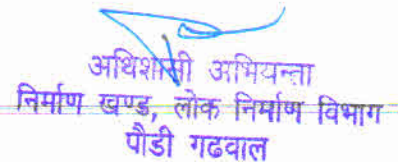 अधिशासी अभियन्ता
निर्माण खण्ड, लोक निर्माण विभाग
पौडी गढवाल